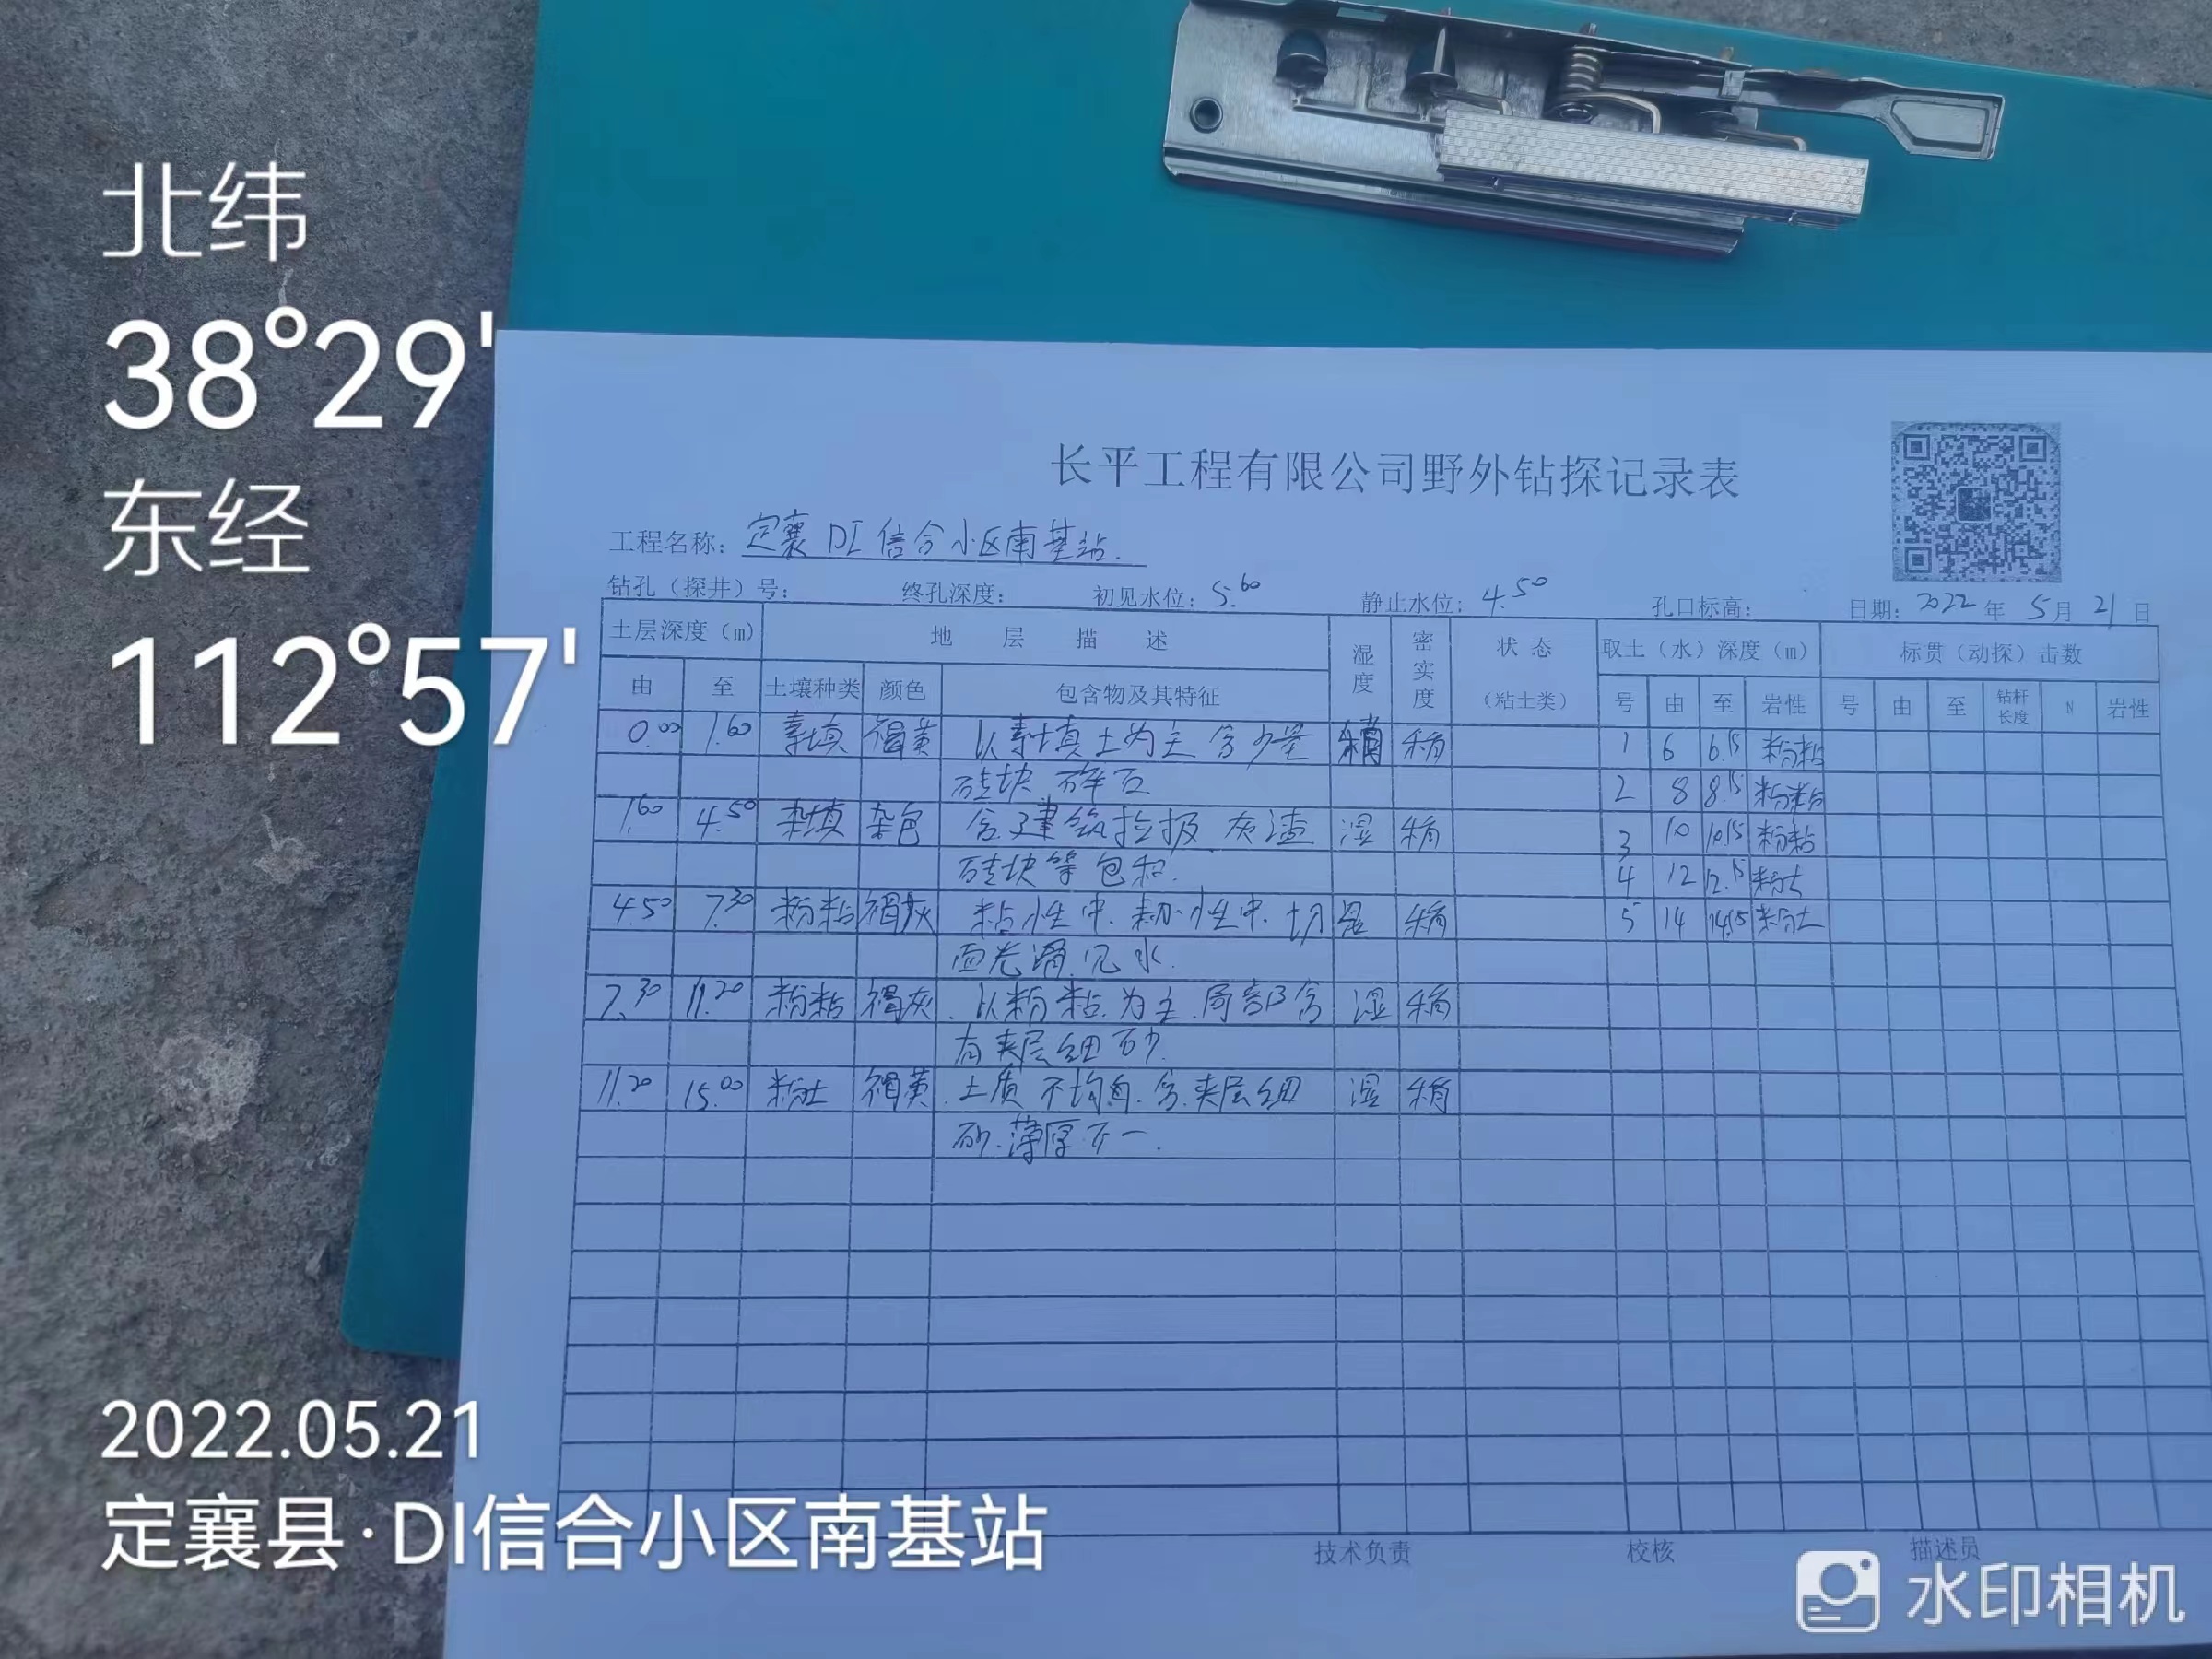 北纬
38°29'
东经
112°57'
长平工程有限公司野外钻探记录表
工程名称: 定襄 DI 信合小区南基站.
钻孔（探井）号: 终孔深度: 初见水位: 5.60 静止水位: 4.50 孔口标高: 日期: 2022 年 5 月 21 日
土层深度（m） 地层描述 湿度 密实度 状态（粘土类） 取土（水）深度（m） 标贯（动探）击数
由 至 土壤种类 颜色 包含物及其特征 号 由 至 岩性 号 由 至 钻杆长度 N 岩性
0.00 1.60 素填 褐黄 以素填土为主 含少量 稍 1 6 6.15 粉粘
砖块 碎石 2 8 8.15 粉粘
1.60 4.50 杂填 杂色 含建筑垃圾 灰渣 湿 稍 3 10 10.15 粉粘
砖块等包和. 4 12 12.15 粉土
4.50 7.30 粉粘 褐灰 粘性中. 韧性中. 切 湿 稍 5 14 14.15 粉土
面光滑. 见水.
7.30 11.20 粉粘 褐灰. 以粉粘.为主.局部含 湿 稍
有夹层细砂.
11.20 15.00 粉土 褐黄. 土质不均匀.含.夹层细 湿 稍
砂.薄厚不一.
技术负责 校核 描述员
2022.05.21
定襄县·DI信合小区南基站
水印相机